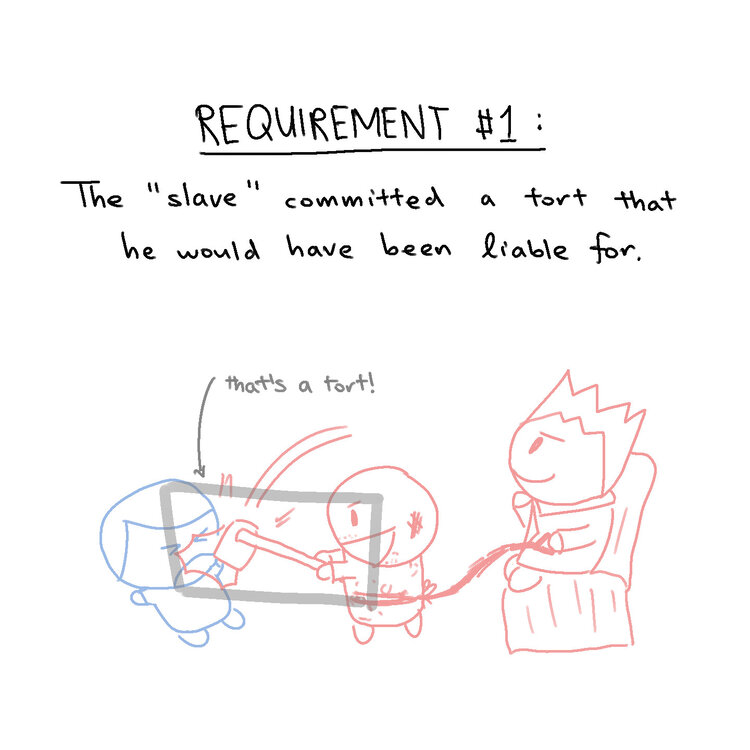 REQUIREMENT #1:
The "slave" committed a tort that
he would have been liable for.
that's a tort!